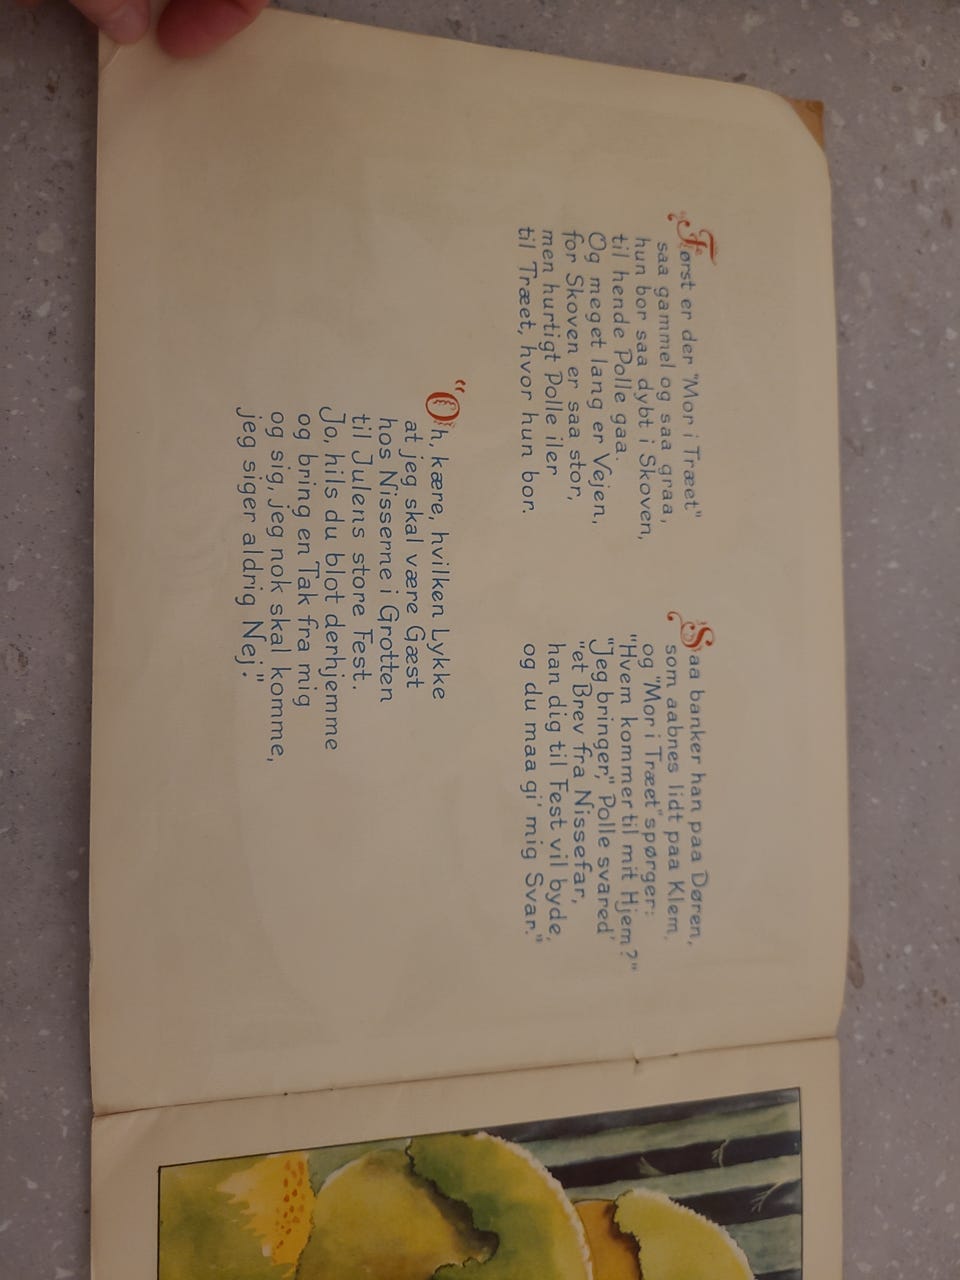 Først er der "Mor i Træet"
saa gammel og saa graa,
hun bor saa dybt i Skoven,
til hende Polle gaa.
Og meget lang er Vejen,
for Skoven er saa stor,
men hurtigt Polle iler
til Træet, hvor hun bor.
Saa banker han paa Døren,
som aabnes lidt paa Klem,
og "Mor i Træet" spørger:
"Hvem kommer til mit Hjem?"
"Jeg bringer," Polle svared'
"et Brev fra Nissefar,
han dig til Fest vil byde,
og du maa gi' mig Svar."
"Oh, kære, hvilken Lykke
at jeg skal være Gæst
hos Nisserne i Grotten
til Julens store Fest.
Jo, hils du blot derhjemme
og bring en Tak fra mig
og sig, jeg nok skal komme,
jeg siger aldrig Nej."